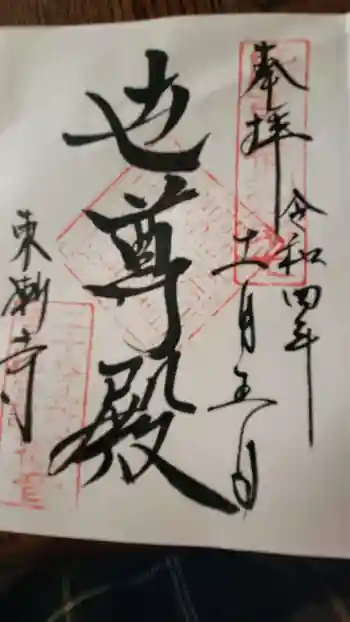 奉拝
令和四年
十一月五日
世尊殿
東漸寺